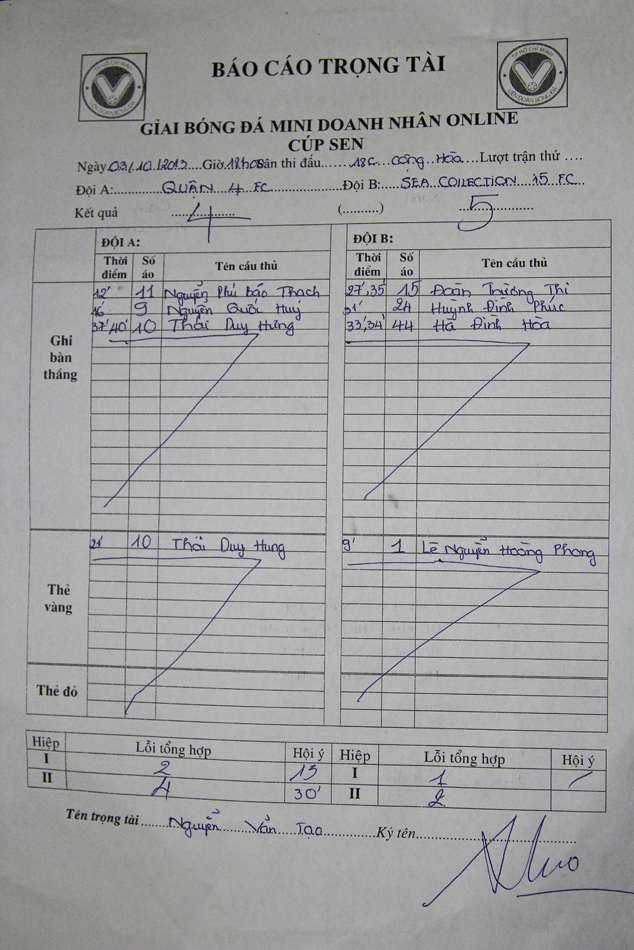 BÁO CÁO TRỌNG TÀI
TP HỒ CHÍ MINH
LIÊN ĐOÀN BÓNG ĐÁ
GIẢI BÓNG ĐÁ MINI DOANH NHÂN ONLINE
CÚP SEN
Ngày 03/10/2013 Giờ 18h00 Sân thi đấu...... 18C..Cộng..Hòa... Lượt trận thứ ....
Đội A:......QUẬN 4 FC......Đội B:...SEA COLLECTION 15 FC..
Kết quả 4 (..........) 5
ĐỘI A: ĐỘI B:
Thời điểm Số áo Tên cầu thủ Thời điểm Số áo Tên cầu thủ
Ghi bàn thắng
12' 11 Nguyễn Phú Bảo Thạch 27',35' 15 Đoàn Trường Thi
16' 9 Nguyễn Quối Huy 31' 24 Huỳnh Đình Phúc
37' 40' 10 Thái Duy Hưng 33',34' 44 Hà Đình Hòa
Thẻ vàng
21' 10 Thái Duy Hưng 9' 1 Lê Nguyễn Hoàng Phong
Thẻ đỏ
Hiệp Lỗi tổng hợp Hội ý Hiệp Lỗi tổng hợp Hội ý
I 2 13 I 1
II 4 30' II 2
Tên trọng tài ......Nguyễn...Văn...Tạo......... Ký tên